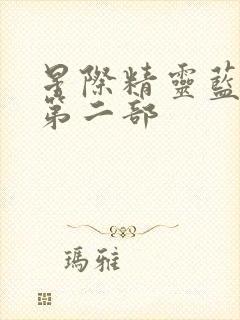 星際精靈藍
第二部
瑪雅